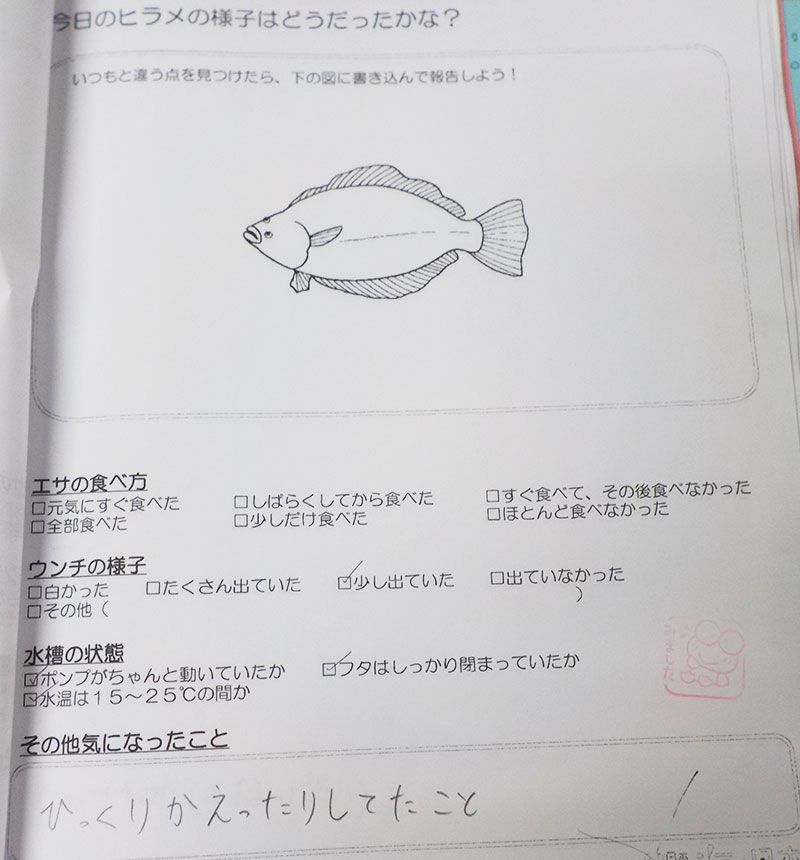 今日のヒラメの様子はどうだったかな？
いつもと違う点を見つけたら、下の図に書き込んで報告しよう！
エサの食べ方
□元気にすぐ食べた □しばらくしてから食べた □すぐ食べて、その後食べなかった
□全部食べた □少しだけ食べた □ほとんど食べなかった
ウンチの様子
□白かった □たくさん出ていた ☑少し出ていた □出ていなかった
□その他（ ）
水槽の状態
☑ポンプがちゃんと動いていたか ☑フタはしっかり閉まっていたか
☑水温は１５～２５℃の間か
その他気になったこと
ひっくりかえったりしてたこと